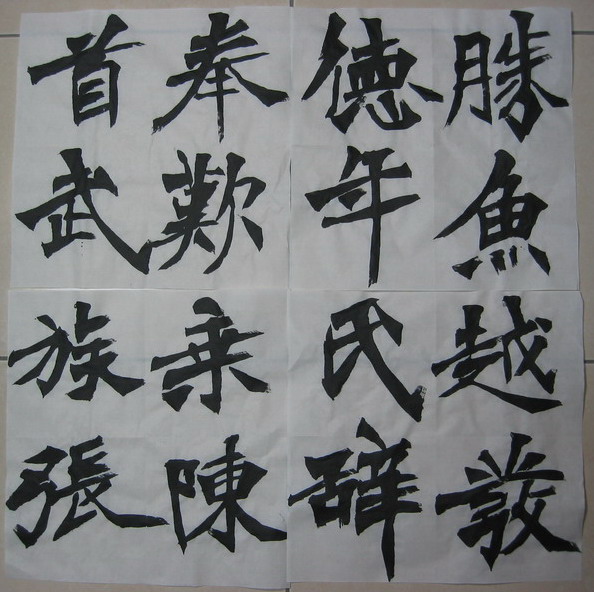 勝魚越發
德年民辭
奉歎乗陳
首武族張